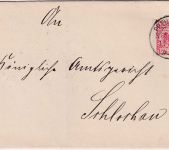 An
Königliche Amtsgericht
Schlochau